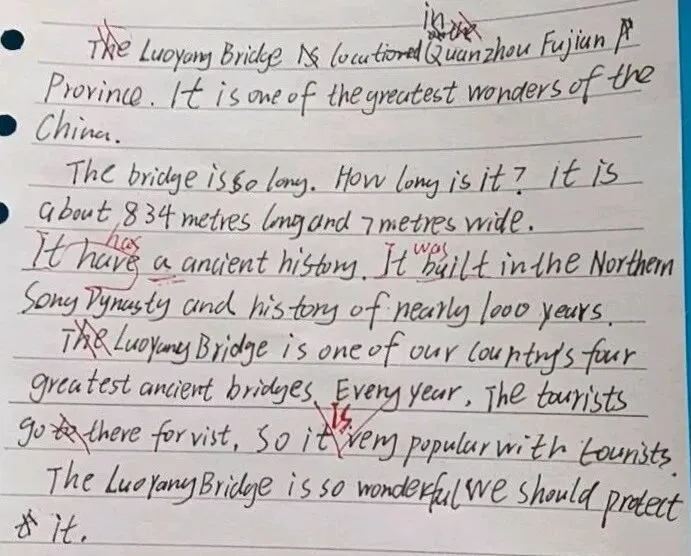 in the
The Luoyang Bridge is locationed Quanzhou Fujian P
Province. It is one of the greatest wonders of the
China.
The bridge is so long. How long is it? it is
about 834 metres long and 7 metres wide.
has was
It have a ancient history. It built in the Northern
Song Dynasty and history of nearly 1000 years.
The Luoyang Bridge is one of our country's four
greatest ancient bridges. Every year, The tourists
is
go to there for vist, So it very popular with tourists.
The Luoyang Bridge is so wonderful we should protect
it.